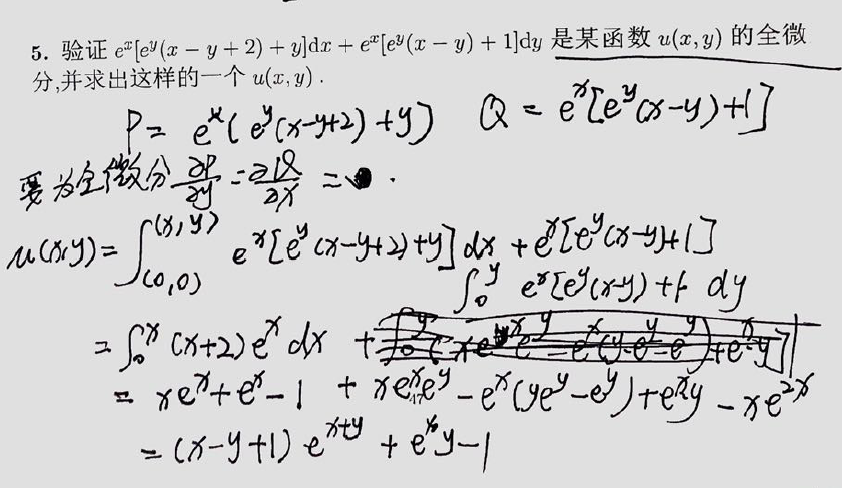 5. 验证 e^x[e^y(x − y + 2) + y]dx + e^x[e^y(x − y) + 1]dy 是某函数 u(x, y) 的全微
分,并求出这样的一个 u(x, y) .
P = e^x(e^y(x-y+2)+y) Q = e^x[e^y(x-y)+1]
要为全微分 ∂P/∂y = ∂Q/∂x = .
u(x,y) = ∫_(0,0)^(x,y) e^x[e^y(x-y+2)+y]dx + e^x[e^y(x-y)+1]
∫_0^y e^x[e^y(x-y)+1 dy
= ∫_0^x (x+2)e^x dx +
= xe^x + e^x - 1 + xe^x e^y - e^x(ye^y - e^y) + e^x y - xe^2x
= (x-y+1) e^x+y + e^x y - 1